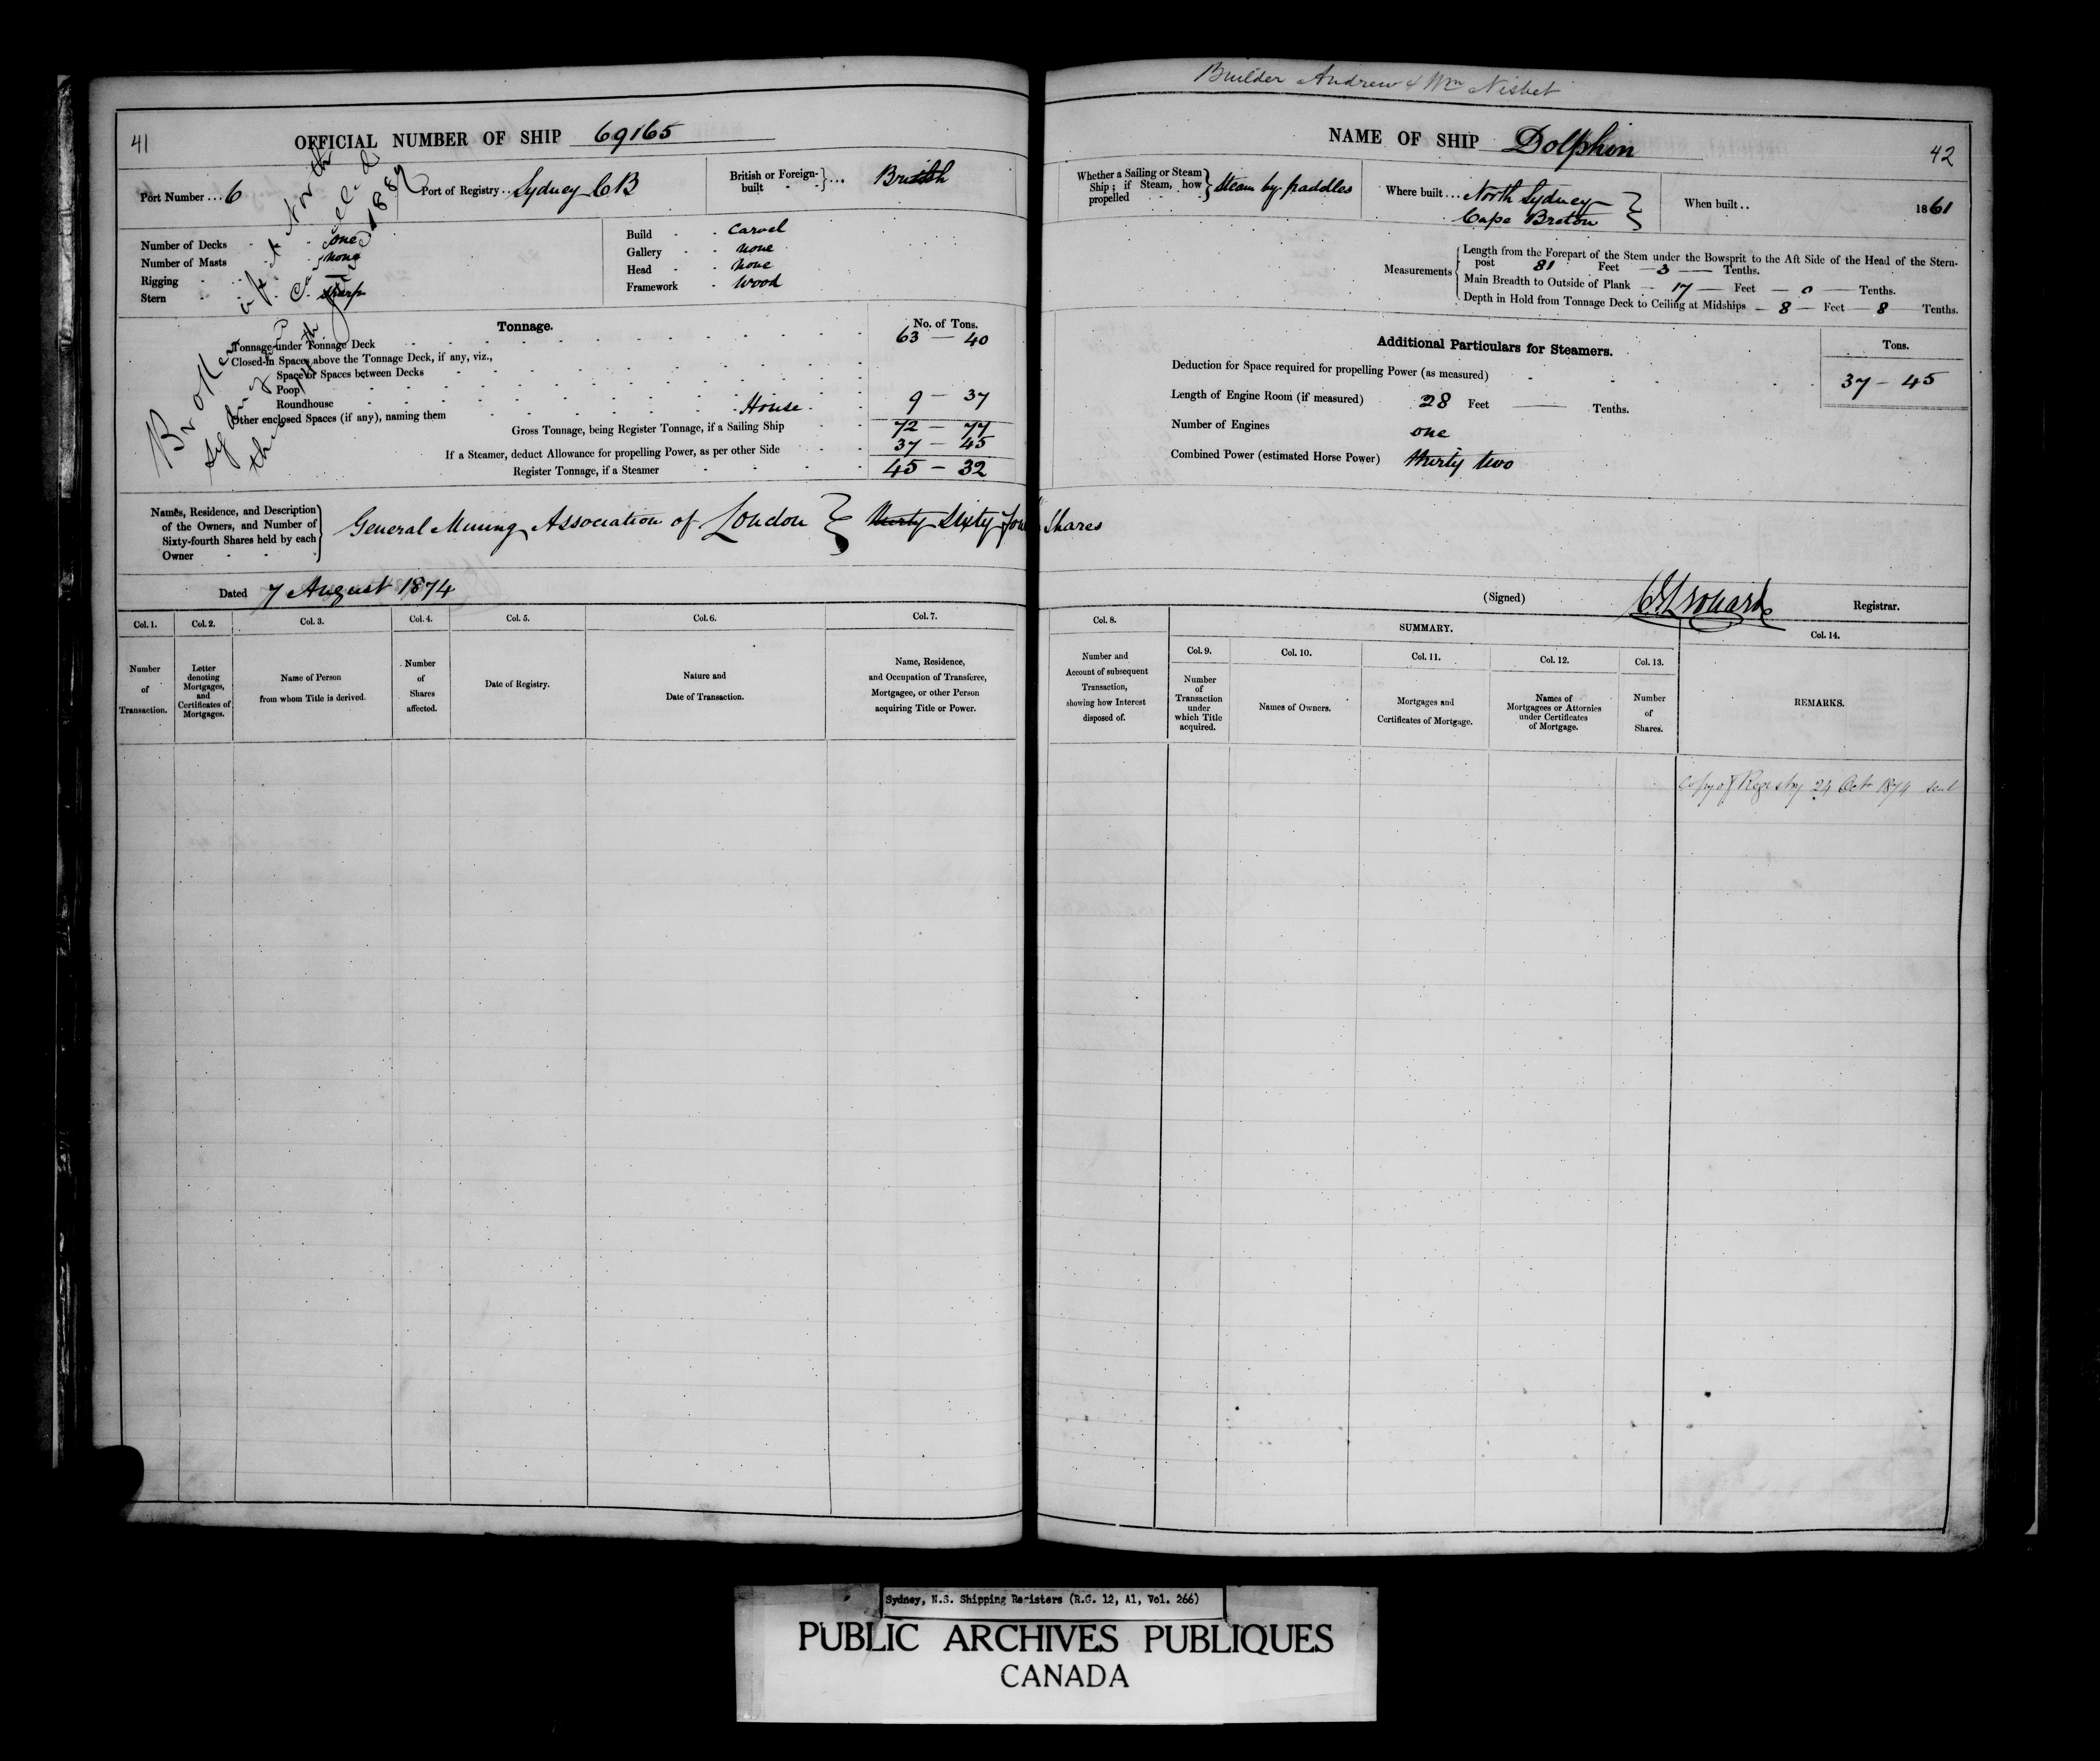 41
OFFICIAL NUMBER OF SHIP 69165
Port Number ... 6
Port of Registry .. Sydney CB
British or Foreign-built } ... British
Number of Decks - one
Number of Masts - none
Rigging -
Stern - sharp
Build - Carvel
Gallery - none
Head - none
Framework - wood
Broken up at North
Sydney Cancelled
14th 188
Tonnage.
No. of Tons.
Tonnage under Tonnage Deck 63 — 40
Closed-in Spaces above the Tonnage Deck, if any, viz.,
Space or Spaces between Decks
Poop
Roundhouse
Other enclosed Spaces (if any), naming them House 9 — 37
Gross Tonnage, being Register Tonnage, if a Sailing Ship 72 — 77
If a Steamer, deduct Allowance for propelling Power, as per other Side 37 — 45
Register Tonnage, if a Steamer 45 — 32
Names, Residence, and Description
of the Owners, and Number of
Sixty-fourth Shares held by each
Owner
General Mining Association of London } thirty Sixty four Shares
Dated 7 August 1874
Col. 1. Col. 2. Col. 3. Col. 4. Col. 5. Col. 6. Col. 7.
Number of Transaction.
Letter denoting Mortgages, and Certificates of Mortgages.
Name of Person from whom Title is derived.
Number of Shares affected.
Date of Registry.
Nature and Date of Transaction.
Name, Residence, and Occupation of Transferee, Mortgagee, or other Person acquiring Title or Power.
Builder Andrew & Wm Nisbet
NAME OF SHIP Dolphin
42
Whether a Sailing or Steam Ship; if Steam, how propelled } Steam by paddles
Where built ... North Sydney Cape Breton }
When built .. 1861
Measurements
Length from the Forepart of the Stem under the Bowsprit to the Aft Side of the Head of the Stern-
post 81 Feet — 3 — Tenths.
Main Breadth to Outside of Plank — 17 — Feet — 0 — Tenths.
Depth in Hold from Tonnage Deck to Ceiling at Midships — 8 — Feet — 8 Tenths.
Additional Particulars for Steamers.
Tons.
Deduction for Space required for propelling Power (as measured) 37 — 45
Length of Engine Room (if measured) 28 Feet — Tenths.
Number of Engines one
Combined Power (estimated Horse Power) thirty two
(Signed) Registrar.
Col. 8.
SUMMARY.
Col. 9. Col. 10. Col. 11. Col. 12. Col. 13. Col. 14.
Number and Account of subsequent Transaction, showing how Interest disposed of.
Number of Transaction under which Title acquired.
Names of Owners.
Mortgages and Certificates of Mortgage.
Names of Mortgagees or Attornies under Certificates of Mortgage.
Number of Shares.
REMARKS.
Copy of Registry 24 Oct 1874 sent
Sydney, N.S. Shipping Registers (R.G. 12, A1, Vol. 266)
PUBLIC ARCHIVES PUBLIQUES
CANADA